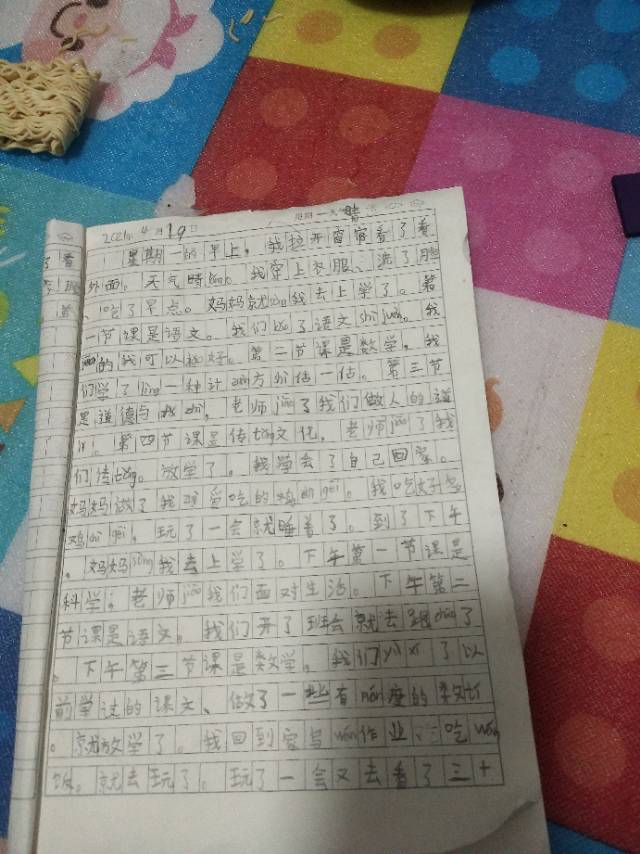 2021年 4月19日 星期一 天气晴
星期一的早上，我拉开窗帘看了看
外面。天气晴lǎng。我穿上衣服、洗了脸
、吃了早点。妈妈就sòng我去上学了。第
一节课是语文。我们kǎo了语文shì juàn。我
的我可以。第二节课是数学。我
们学了lìng一种计suàn方fǎ估一估。第三节
是道德与fǎ zhì。老师jiāo了我们做人的道
lǐ。第四节课是传tǒng文化。老师jiāo了我
们传tǒng。放学了。我学会了自己回家。
妈妈做了我zuì爱吃的鸡dàn gēng。我吃好
鸡dàn gēng。玩了一会就睡着了。到了下午
。妈妈sòng我去上学了。下午第一节课是
科学；老师jiāo我们面对生活。下午第二
节课是语文。我们开了班会就去跳cāo了
。下午第三节课是数学。我们fù xí了以
前学过的课文、做了一些有nán度的数
。就放学了。我回到家写wán作业、吃wǎn
饭。就去玩了。玩了一会又去看了三十